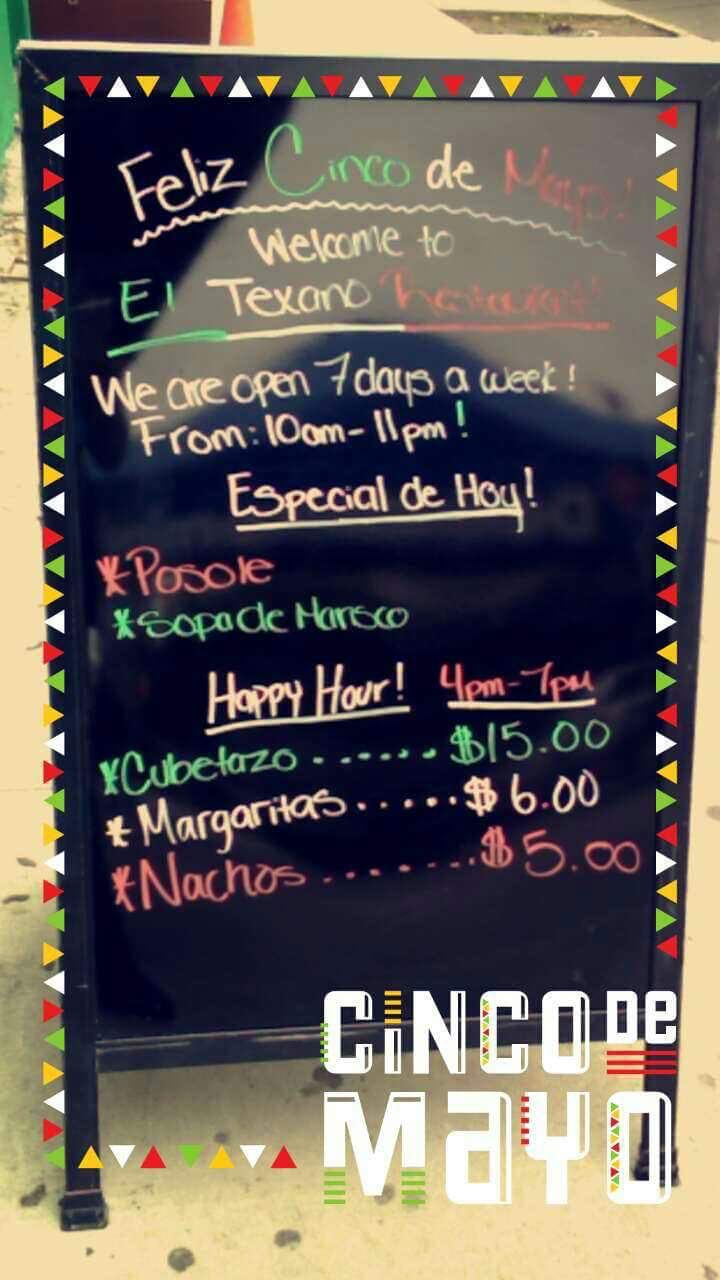 Feliz Cinco de Mayo!
Welcome to
El Texano Restaurant!
We are open 7 days a week!
From: 10am - 11pm!
Especial de Hoy!
*Posole
*Sopa de Marisco
Happy Hour! 4pm - 7pm
*Cubetazo ...... $15.00
*Margaritas ..... $6.00
*Nachos ....... $5.00
CINCO DE
MAYO